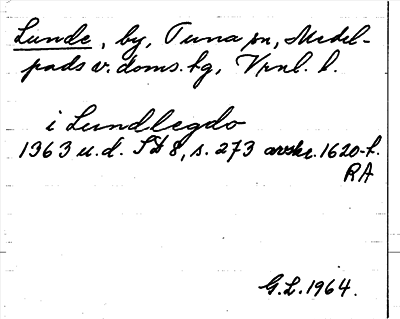 Lunde, by, Tuna sn, Medel-
pads v. doms.hg, Vrnl. l.
i Lundlegdo
1363 u.d. SD 8, s. 273 avskr. 1620-t.
RA
G.L. 1964.